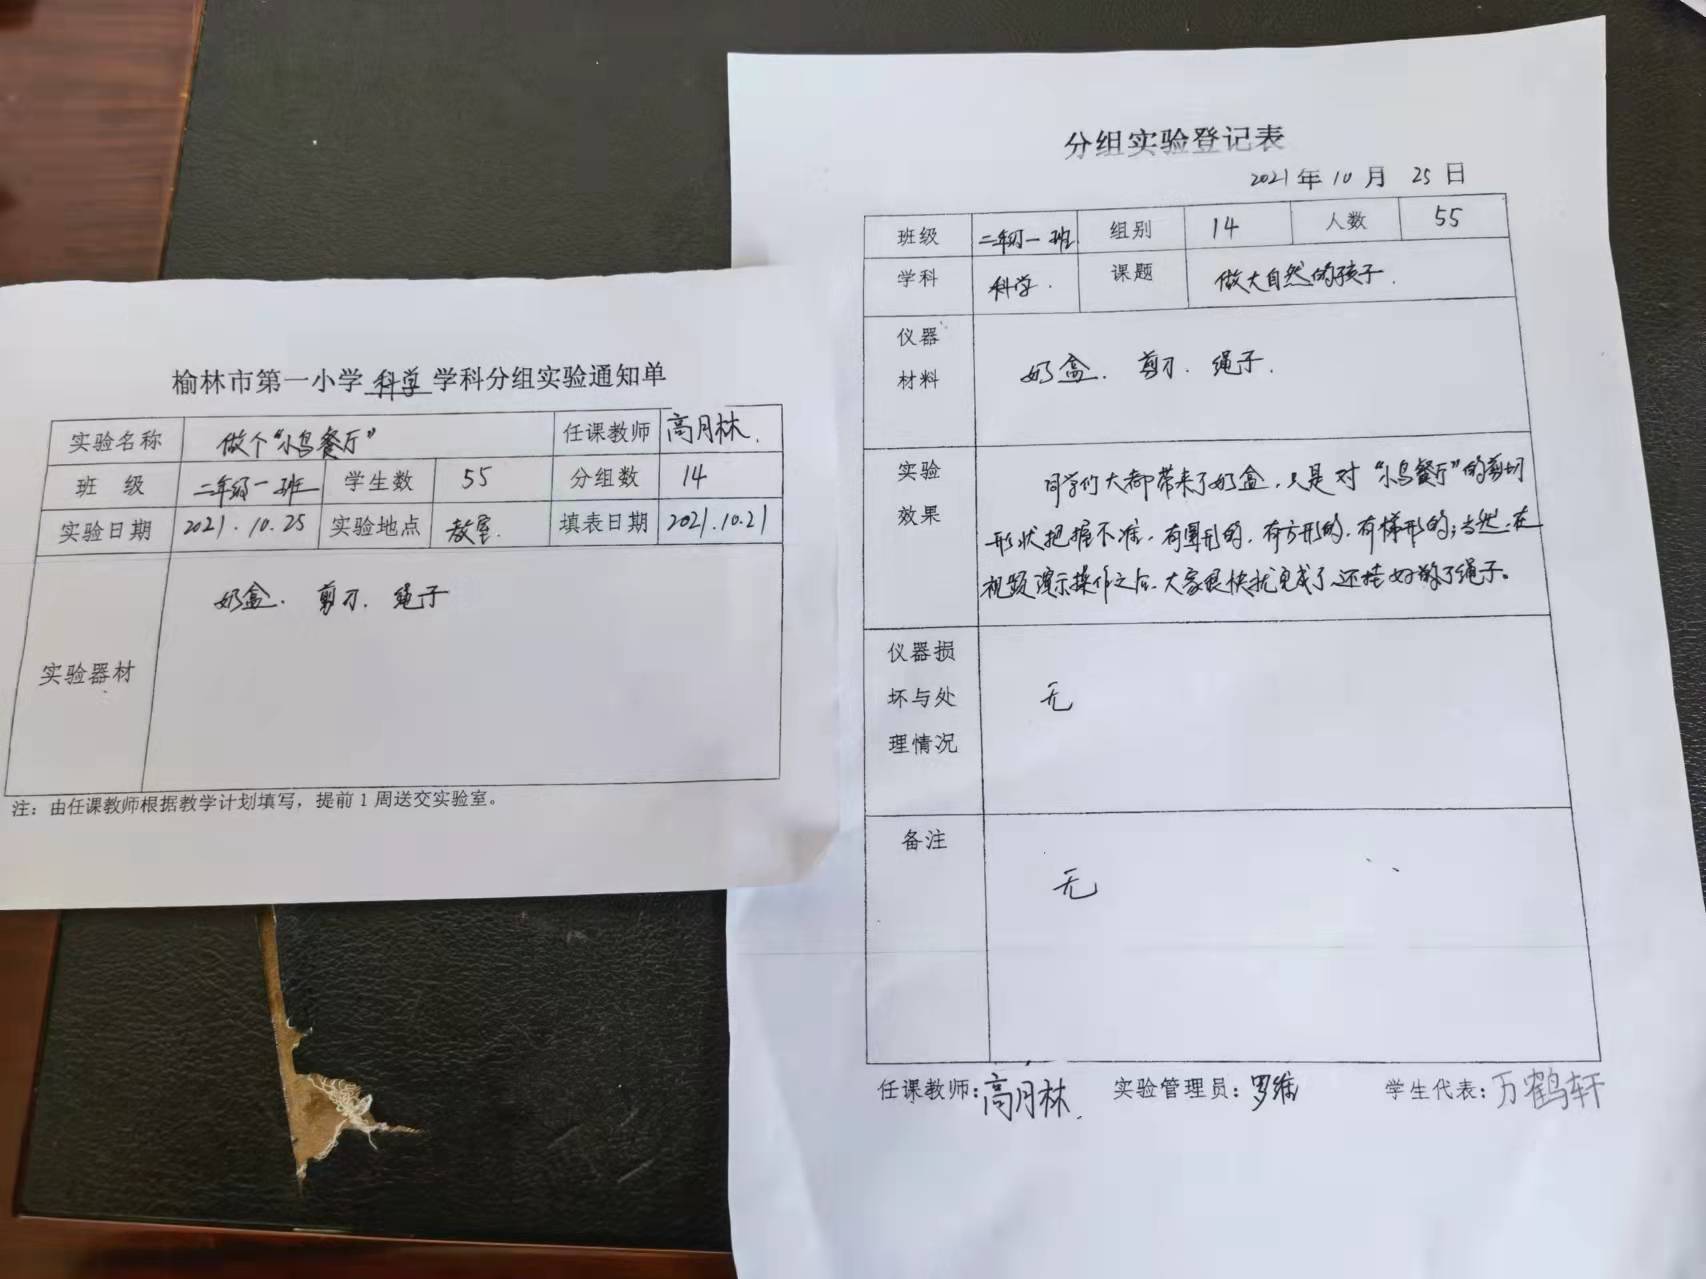 榆林市第一小学 科学 学科分组实验通知单
实验名称 做个“小鸟餐厅” 任课教师 高月林.
班 级 二年级一班 学生数 55 分组数 14
实验日期 2021.10.25 实验地点 教室. 填表日期 2021.10.21
实验器材 奶盒. 剪刀. 绳子
注：由任课教师根据教学计划填写，提前1周送交实验室。
分组实验登记表
2021年10月25日
班级 二年级一班 组别 14 人数 55
学科 科学. 课题 做大自然的孩子.
仪器
材料
奶盒. 剪刀. 绳子.
实验
效果
同学们大都带来了奶盒,只是对“小鸟餐厅”的剪切
形状把握不准,有圆形的,有方形的,有梯形的;当然,在
视频演示操作之后,大家很快就完成了,还挂好了绳子。
仪器损
坏与处
理情况
无
备注
无
任课教师:高月林. 实验管理员:罗维 学生代表:万鹤轩